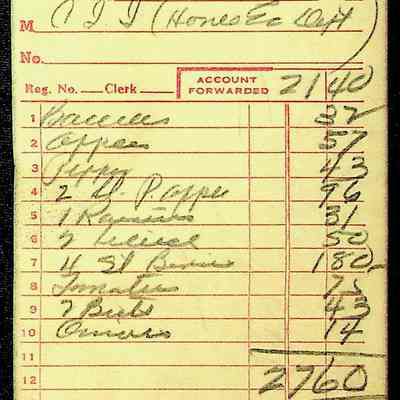 M C I I (Homes Ec Dept)
No.
Reg. No. Clerk ACCOUNT FORWARDED 21 40
1 32
2 Apples 57
3 43
4 2 P. apple 96
5 1 Raisins 31
6 2 lettuce 50
7 4 St Beans 180
8 Tomatoes
9 2 Beets 43
10 Onions 14
11
12 2760